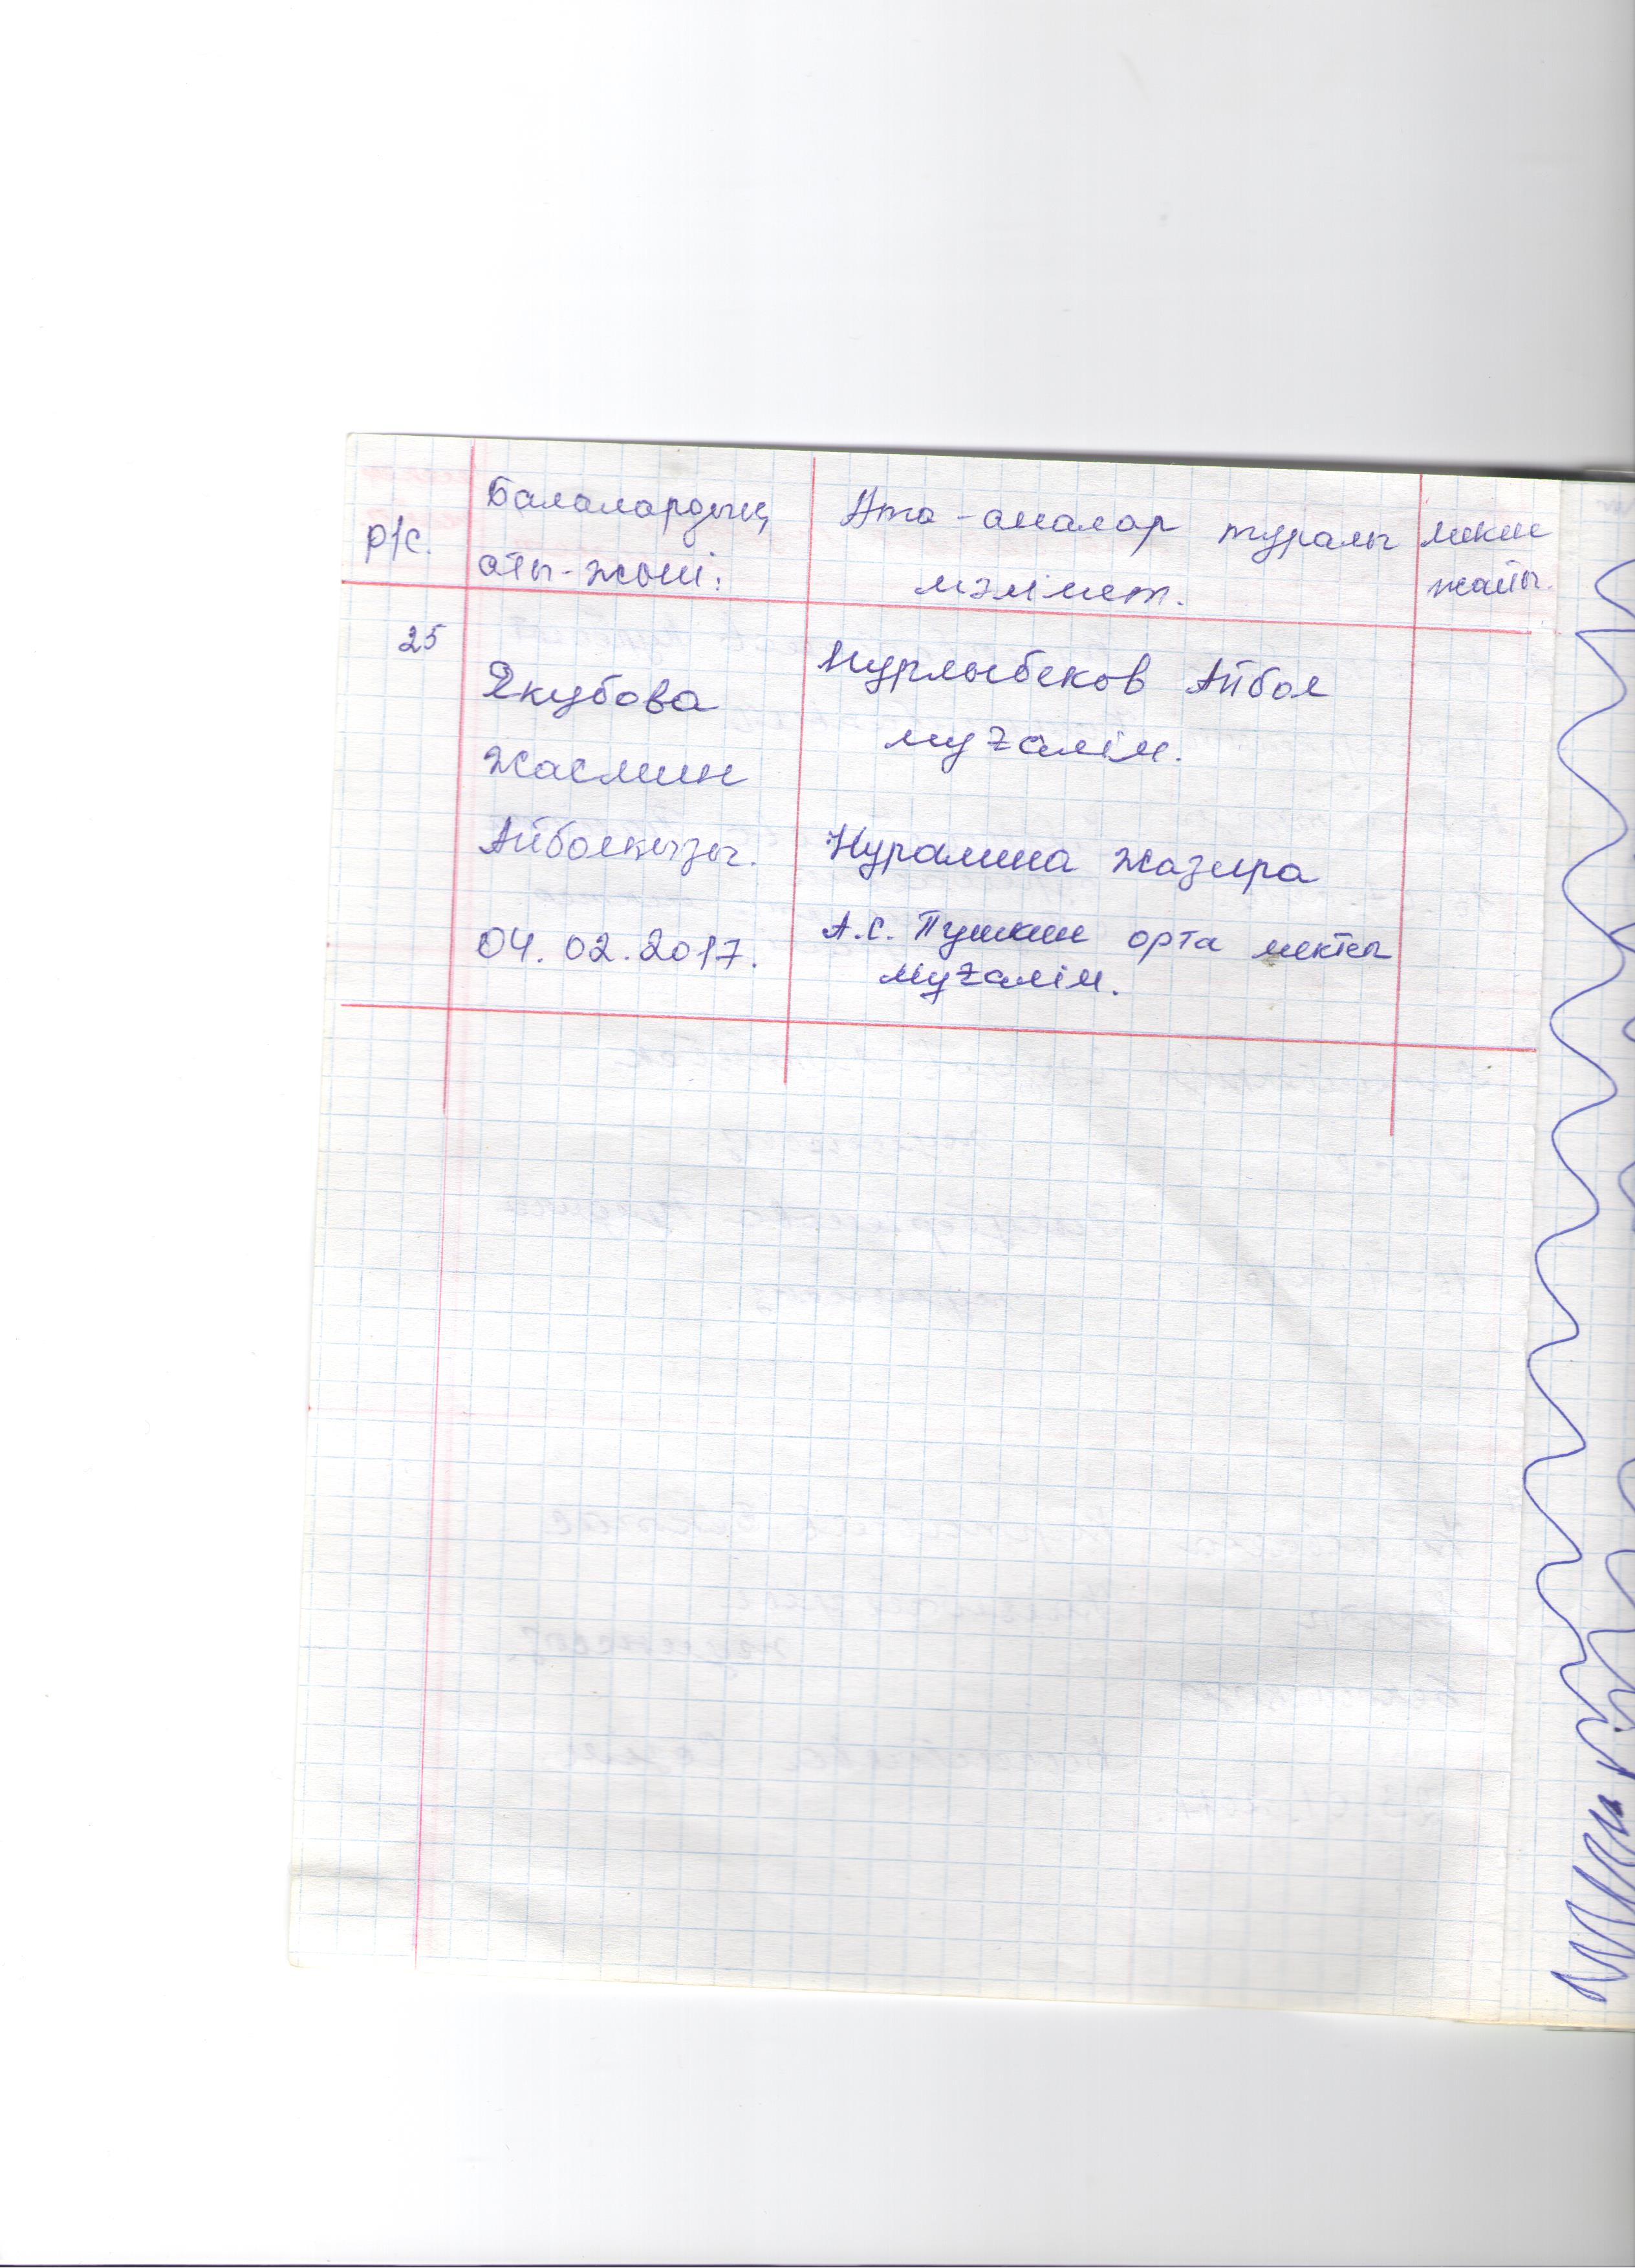 р/с.
Балалардың
аты-жөні:
Ата-аналар туралы
мәлімет.
мекен
жайы.
25
Якубова
Жасмин
Айболқызы.
04.02.2017.
Нурлыбеков Айбол
мұғалім.
Нуралина Жазира
А.С. Пушкин орта мектеп
мұғалім.